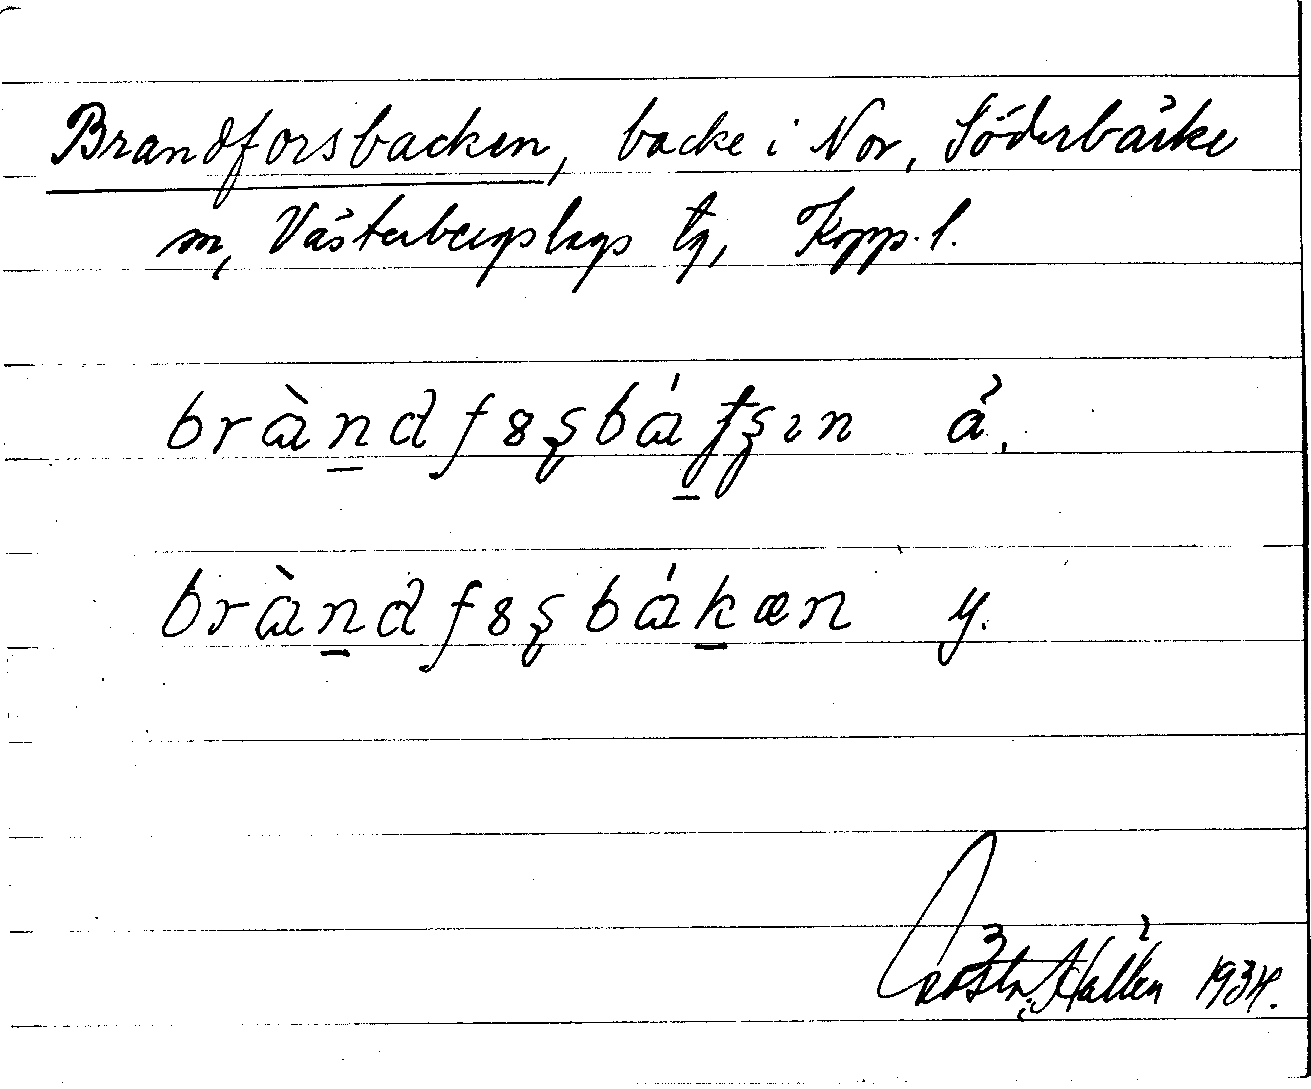 Brandforsbacken, backe i Nor, Söderbärke
sn, Västerbergslags tg, Kopp. l.
brànd fɞʂbáțʂın ä.
brànd fɞʂ bákæn y.
Gösta Hallén 1934.